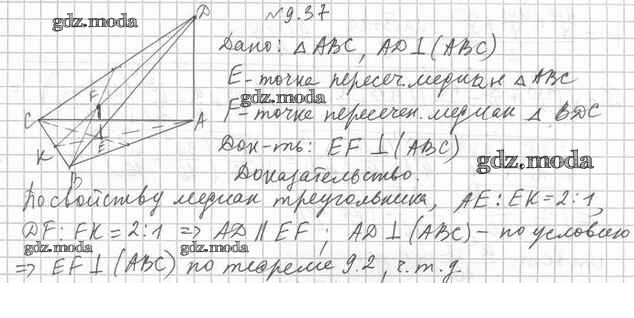 №9.37
gdz.moda
Дано: △ABC, AD⊥(ABC)
E - точка пересеч. медиан △ABC
gdz.moda
F - точка пересечен. медиан △ BDC
Док-ть: EF⊥(ABC)
gdz.moda
Доказательство.
По свойству медиан треугольника, AE:EK=2:1,
DF:FK=2:1 ⇒ AD∥EF; AD⊥(ABC) - по условию
gdz.moda gdz.moda
⇒ EF⊥(ABC) по теореме 9.2, ч.т.д.
D
F
C
A
E
K
B